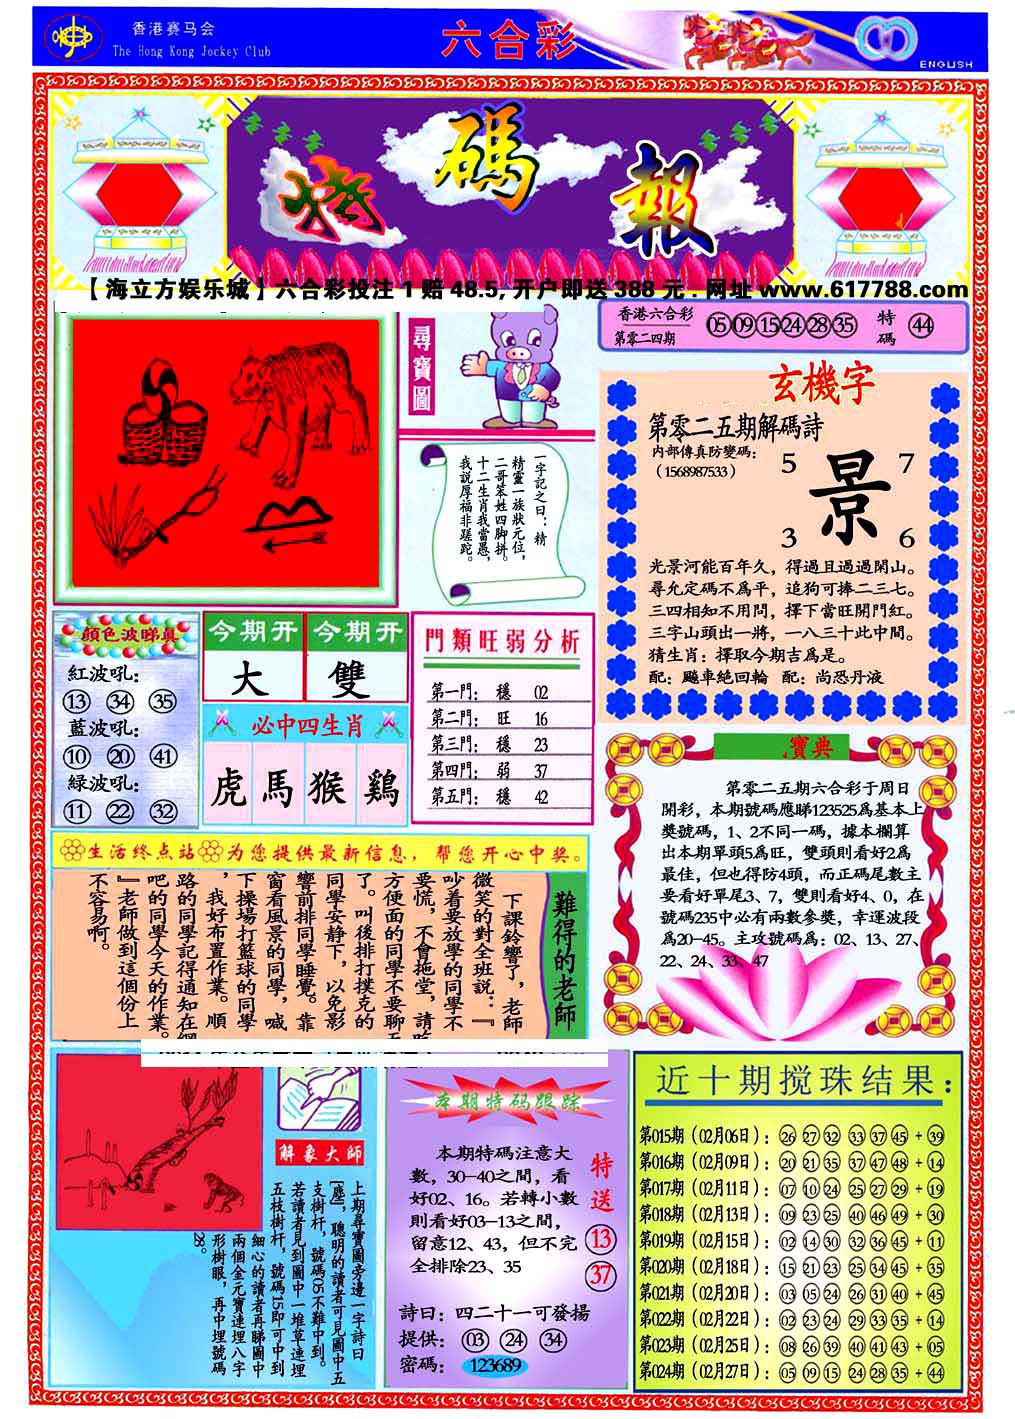 香港赛马会
The Hong Kong Jockey Club
六合彩
ENGLISH
特碼報
【海立方娱乐城】六合彩投注1赔48.5,开户即送388元.网址www.617788.com
尋寶圖
一字記之曰：精
精靈一族狀元位，
二哥笨姓四脚拼。
十二生肖我當愚，
我説厚福非蹉跎。
香港六合彩
第零二四期
05 09 15 24 28 35
特碼
44
玄機字
第零二五期解碼詩
内部傳真防變碼：
（1568987533）
5 7
景
3 6
光景河能百年久，得過且過過閑山。
尋允定碼不爲平，追狗可捧二三七。
三四相知不用問，擇下當旺開門紅。
三字山頭出一將，一八三十此中間。
猜生肖：擇取今期吉爲是。
配：飚車絶回輪 配：尚恐丹液
顔色波睇真
紅波吼：
13 34 35
藍波吼：
10 20 41
緑波吼：
11 22 32
今期开 今期开
大 雙
必中四生肖
虎 馬 猴 鷄
門類旺弱分析
第一門： 穩 02
第二門： 旺 16
第三門： 穩 23
第四門： 弱 37
第五門： 穩 42
寶典
第零二五期六合彩于周日
開彩，本期號碼應睇123525爲基本上
獎號碼，1、2不同一碼，據本欄算
出本期單頭5爲旺，雙頭則看好2爲
最佳，但也得防4頭，而正碼尾數主
要看好單尾3、7，雙則看好4、0，在
號碼235中必有兩數參獎，幸運波段
爲20-45。主攻號碼爲：02、13、27、
22、24、33、47
生活终点站 为您提供最新信息，帮您开心中奖。
難得的老師
下課鈴響了，老師
微笑的對全班説：『
吵着要放學的同學不
要慌，不會拖堂，請吃
方便面的同學不要聊天
了。叫後排打撲克的
同學安静下，以免影
響前排同學睡覺。靠
窗看風景的同學，喊
下操場打籃球的同學
，我好布置作業。順
路的同學記得通知在網
吧的同學今天的作業。
』老師做到這個份上
不容易啊。
解象大師
上期尋寶圖旁邊一字詩曰
[塵]，聰明的讀者可見圖中五
支樹杆，號碼05不難中到。
若讀者見到圖中一堆草連埋
五枝樹杆，號碼15即可中到
細心的讀者再睇圖中
兩個金元寶連埋八字
形樹眼，再中埋號碼
28。
本期特码跟踪
本期特碼注意大
數，30-40之間，看
好02、16。若轉小數
則看好03-13之間，
留意12、43，但不完
全排除23、35
特送
13
37
詩曰：四二十一可發揚
提供： 03 24 34
密碼： 123689
近十期搅珠结果：
第015期（02月06日）：26 27 32 33 37 45 + 39
第016期（02月09日）：20 21 35 37 47 48 + 14
第017期（02月11日）：07 10 24 25 27 29 + 19
第018期（02月13日）：09 23 25 40 46 49 + 30
第019期（02月15日）：02 14 30 32 36 45 + 11
第020期（02月18日）：15 21 23 25 34 45 + 35
第021期（02月20日）：03 05 24 26 31 40 + 45
第022期（02月22日）：02 23 24 29 33 35 + 14
第023期（02月25日）：08 26 39 40 41 43 + 05
第024期（02月27日）：05 09 15 24 28 35 + 44